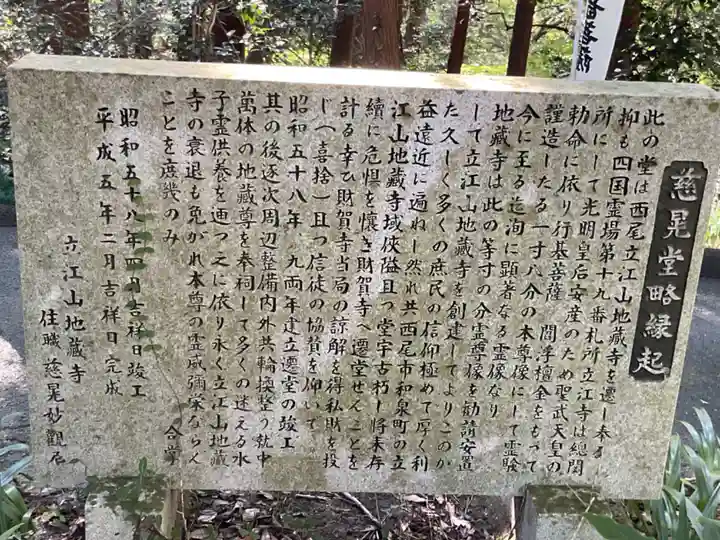 慈晃堂略縁起
此の堂は西尾立江山地蔵寺を遷し奉る
抑も四国霊場第十九番札所立江寺は総関
所にして光明皇后安産のため聖武天皇の
勅命に依り行基菩薩 閻浮檀金をもって
謹造したる一寸八分の本尊像にして霊験
今に至る迄洵に顕著なる霊像なり
地蔵寺は此の等寸の分霊尊像を勧請安置
して立江山地蔵寺を創建してよりこのか
た久しく多くの庶民の信仰極めて厚く利
益遠近に遍ねし然れ共西尾市和泉町の立
江山地蔵寺域狭隘且つ堂宇古朽し将来存
続に危惧を懐き財賀寺へ遷堂せんことを
計る幸ひ財賀寺当局の諒解を得私財を投
じ(喜捨)且つ信徒の協賛を仰いで
昭和五十八年 九両年建立遷堂の竣工
其の後逐次周辺整備内外共輪換整う就中
萬体の地蔵尊を奉祠して多くの迷える水
子霊供養を通つ之に依り永く立江山地蔵
寺の衰退も免がれ本尊の霊威彌栄ならく
ことを庶幾のみ 合掌
昭和五十八年四月吉祥日竣工
平成五年二月吉祥日完成
立江山地蔵寺
住職 慈晃妙観尼